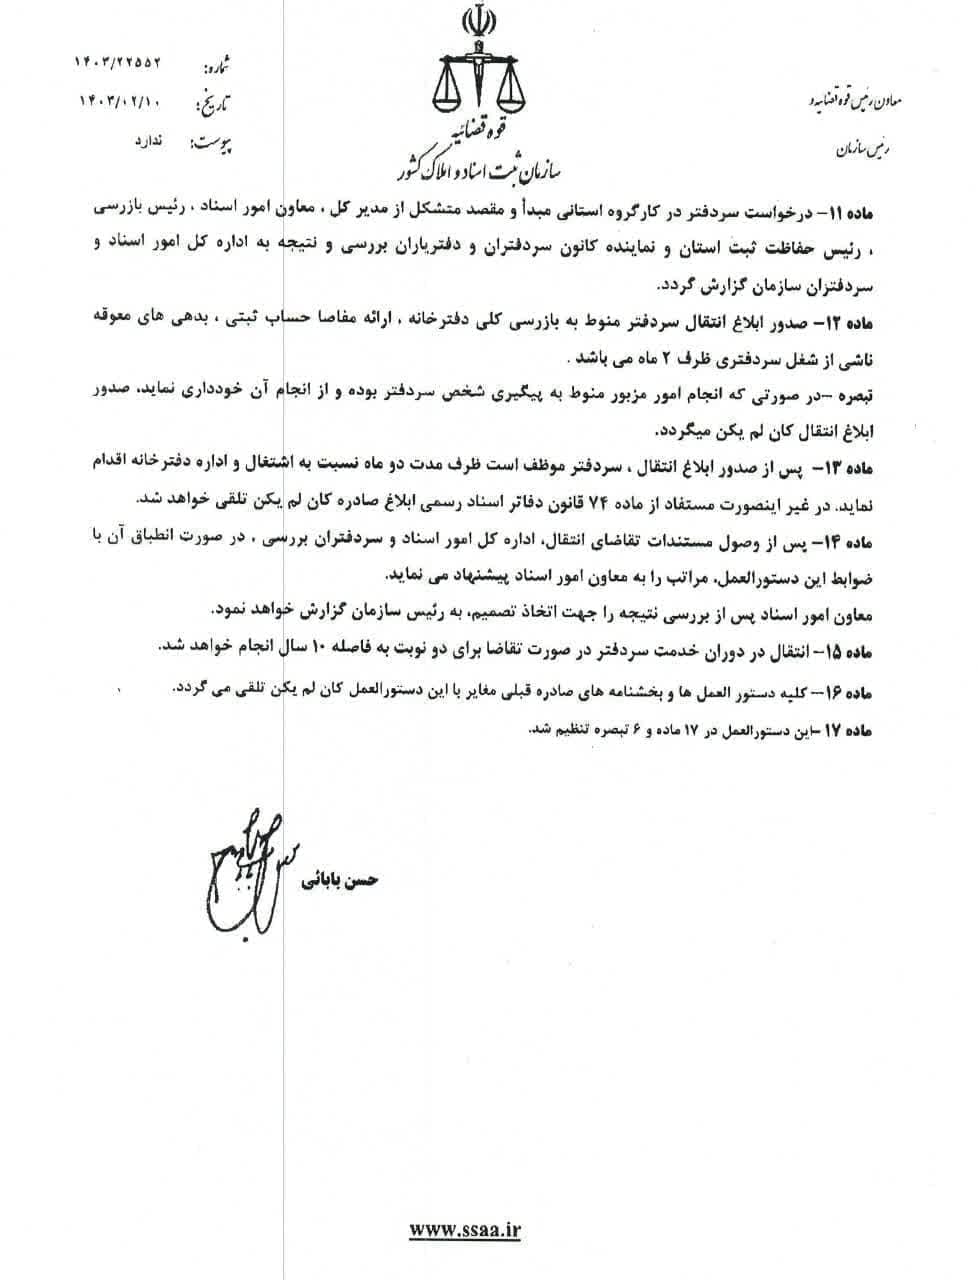 قوه قضائیه
سازمان ثبت اسناد و املاک کشور
معاون رئیس قوه قضاییه و
رئیس سازمان
شماره: ۱۴۰۳/۲۲۵۵۲
تاریخ: ۱۴۰۳/۰۲/۱۰
پیوست: ندارد
ماده ۱۱- درخواست سردفتر در کارگروه استانی مبدأ و مقصد متشکل از مدیر کل ، معاون امور اسناد ، رئیس بازرسی
، رئیس حفاظت ثبت استان و نماینده کانون سردفتران و دفتریاران بررسی و نتیجه به اداره کل امور اسناد و
سردفتران سازمان گزارش گردد.
ماده ۱۲- صدور ابلاغ انتقال سردفتر منوط به بازرسی کلی دفترخانه ، ارائه مفاصا حساب ثبتی ، بدهی های معوقه
ناشی از شغل سردفتری ظرف ۲ ماه می باشد .
تبصره –در صورتی که انجام امور مزبور منوط به پیگیری شخص سردفتر بوده و از انجام آن خودداری نماید، صدور
ابلاغ انتقال کان لم یکن میگردد.
ماده ۱۳- پس از صدور ابلاغ انتقال ، سردفتر موظف است ظرف مدت دو ماه نسبت به اشتغال و اداره دفترخانه اقدام
نماید. در غیر اینصورت مستفاد از ماده ۷۴ قانون دفاتر اسناد رسمی ابلاغ صادره کان لم یکن تلقی خواهد شد.
ماده ۱۴- پس از وصول مستندات تقاضای انتقال، اداره کل امور اسناد و سردفتران بررسی ، در صورت انطباق آن با
ضوابط این دستورالعمل، مراتب را به معاون امور اسناد پیشنهاد می نماید.
معاون امور اسناد پس از بررسی نتیجه را جهت اتخاذ تصمیم، به رئیس سازمان گزارش خواهد نمود.
ماده ۱۵- انتقال در دوران خدمت سردفتر در صورت تقاضا برای دو نوبت به فاصله ۱۰ سال انجام خواهد شد.
ماده ۱۶- کلیه دستور العمل ها و بخشنامه های صادره قبلی مغایر با این دستورالعمل کان لم یکن تلقی می گردد.
ماده ۱۷ -این دستورالعمل در ۱۷ ماده و ۶ تبصره تنظیم شد.
حسن بابائی
www.ssaa.ir